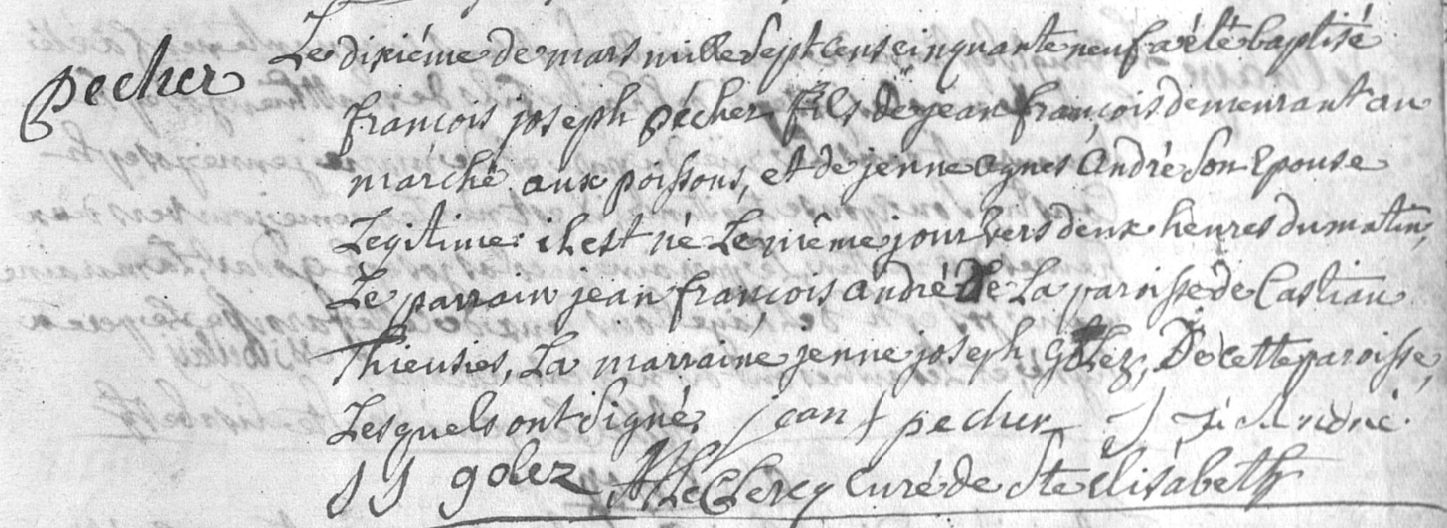 pecher
Le dixiéme de mars mille Sept Cens cinquante neuf a été baptisé
françois joseph pécher fils de jean françois demeurant au
marché aux poissons, et de jenne agnes André Son Epouse
Legitime: il est né Le même jour vers deux heures du matin,
Le parrain jean françois andré De La paroisse de Castiau
Thieusies, La marraine jenne joseph golez, De cette paroisse,
Lesquels ont Signé, jean f pecher J f Andrié
J J golez Le Clercq Curé de Ste elisabeth